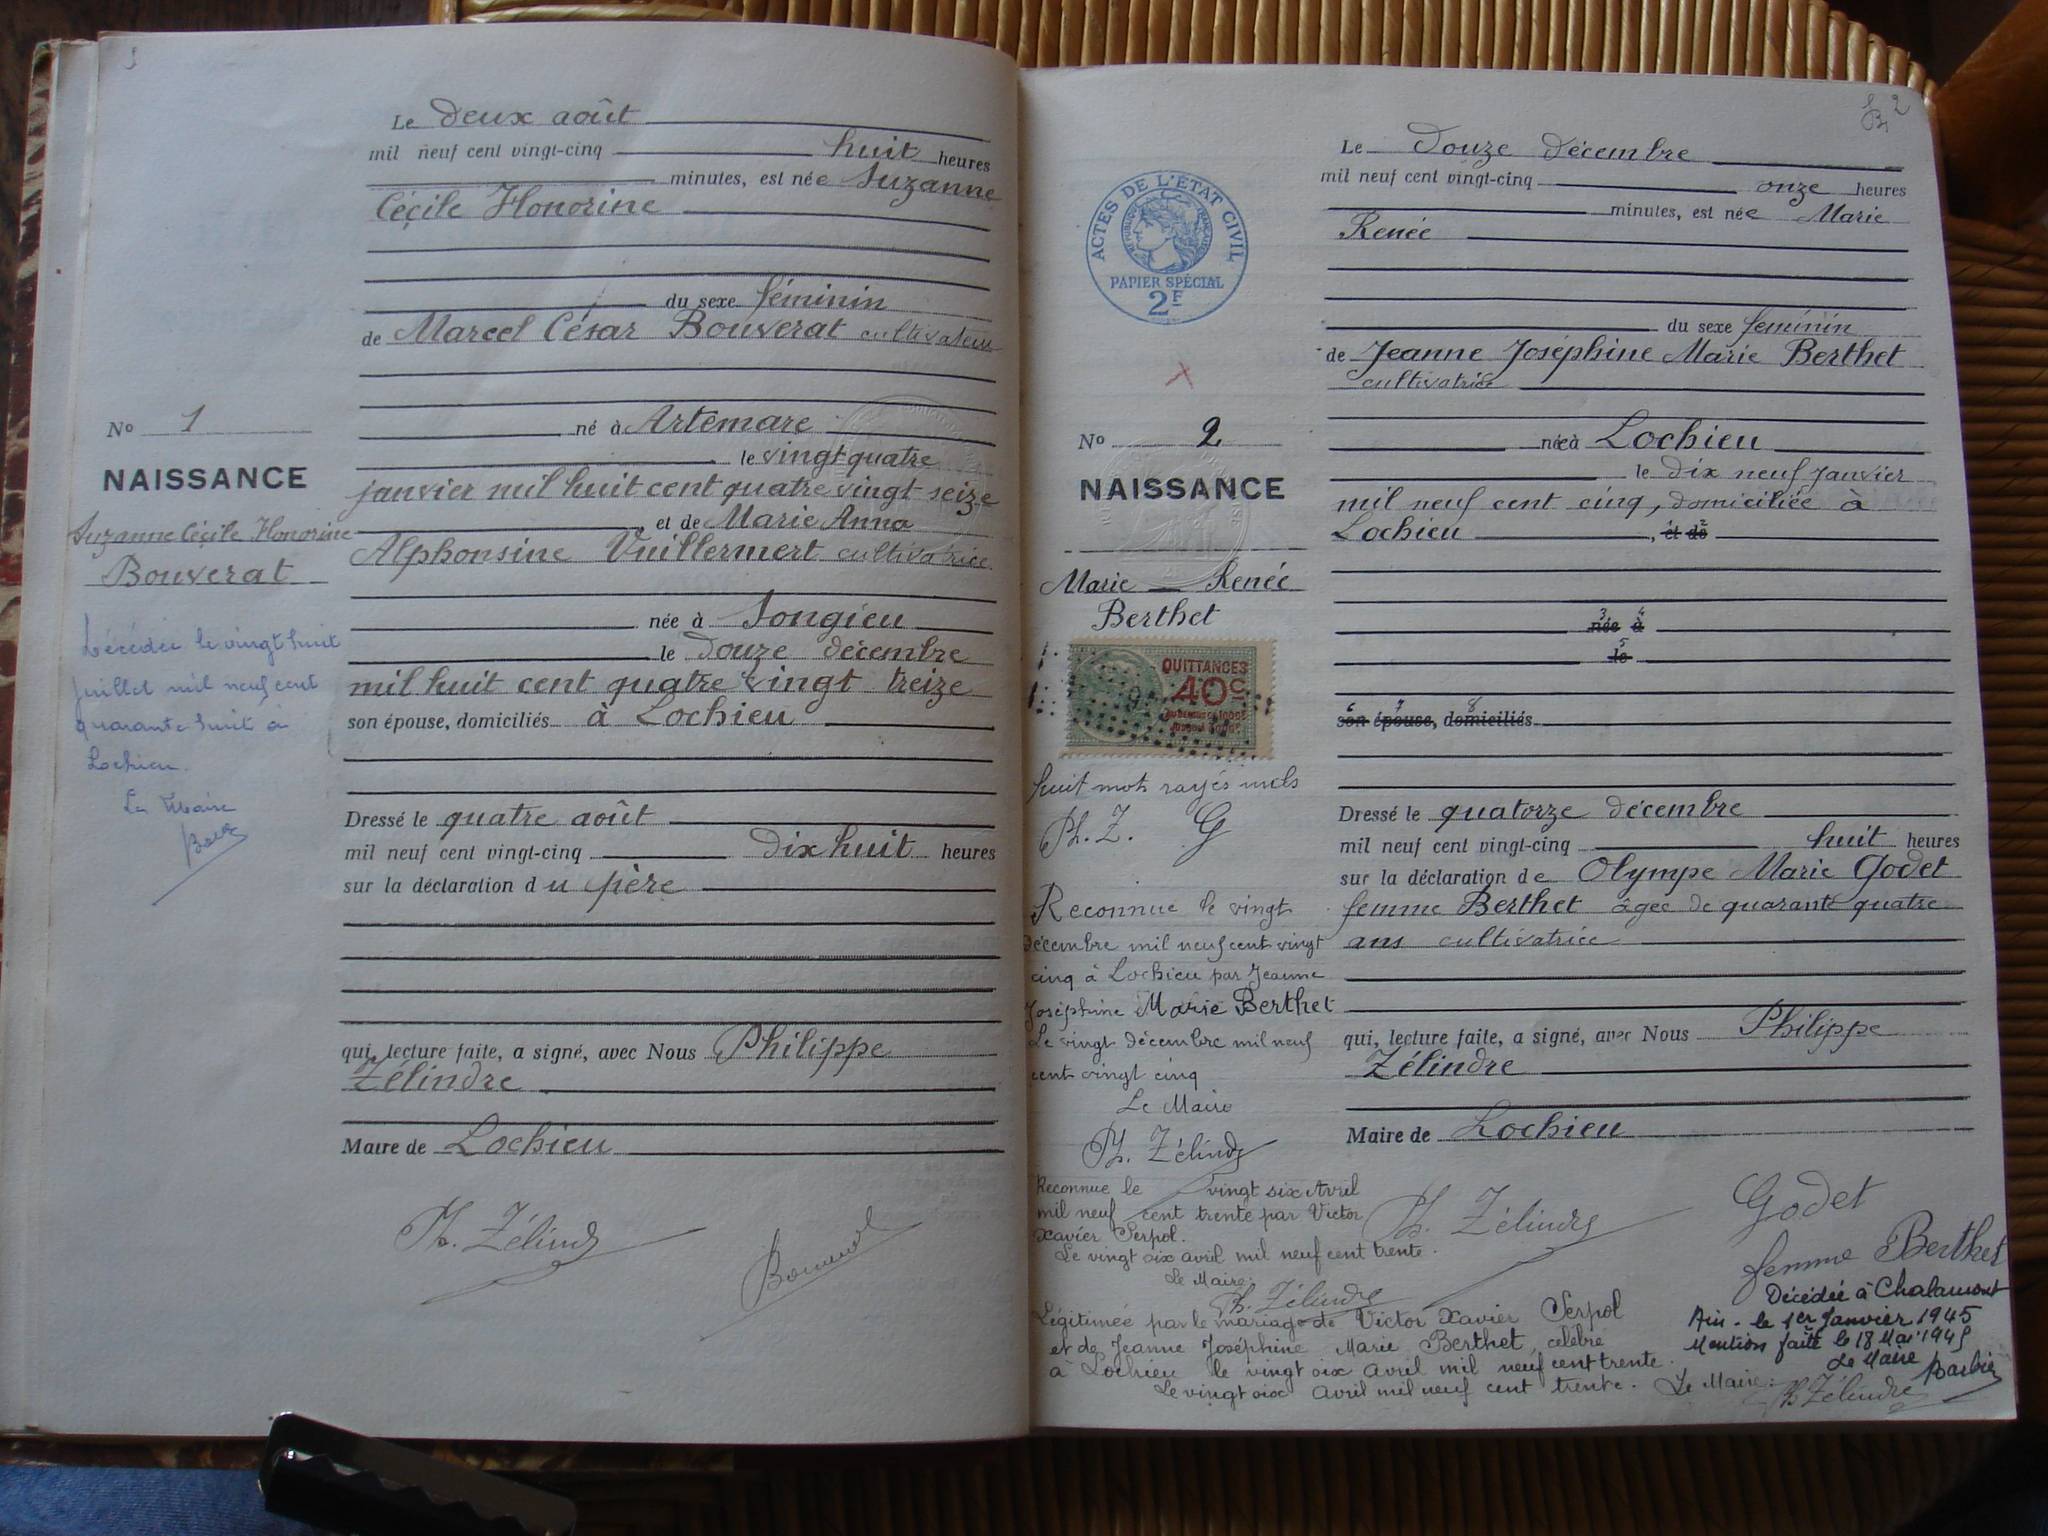 Le deux août
mil neuf cent vingt-cinq huit heures
minutes, est née Suzanne
Cécile Honorine
du sexe féminin
de Marcel César Bouverat cultivateur
né à Artemare
le vingt quatre
janvier mil huit cent quatre vingt seize
et de Marie Anna
Alphonsine Vuillermert cultivatrice
née à Songieu
le douze décembre
mil huit cent quatre vingt treize
son épouse, domiciliés à Lochieu
Dressé le quatre août
mil neuf cent vingt-cinq dix huit heures
sur la déclaration du père
qui, lecture faite, a signé, avec Nous Philippe
Zélindre
Maire de Lochieu
Ph. Zélindre
No 1
NAISSANCE
Suzanne Cécile Honorine
Bouverat
Décédée le vingt huit
juillet mil neuf cent
quarante huit à
Lochieu.
Le Maire
2
ACTES DE L'ÉTAT CIVIL
RÉPUBLIQUE FRANÇAISE
PAPIER SPÉCIAL
2F
No 2
NAISSANCE
Marie Renée
Berthet
QUITTANCES
40c
huit mots rayés nuls
Ph. Z. G
Reconnue le vingt
décembre mil neuf cent vingt
cinq à Lochieu par Jeanne
Joséphine Marie Berthet
Le vingt décembre mil neuf
cent vingt cinq
Le Maire
Ph. Zélindre
Reconnue le vingt six Avril
mil neuf cent trente par Victor
Xavier Serpol.
Le vingt six avril mil neuf cent trente.
Le Maire:
Ph. Zélindre
Légitimée par le mariage de Victor Xavier Serpol
et de Jeanne Joséphine Marie Berthet, célébré
à Lochieu le vingt six avril mil neuf cent trente.
Le vingt six avril mil neuf cent trente. Le Maire:
Ph Zélindre
Le douze décembre
mil neuf cent vingt-cinq onze heures
minutes, est née Marie
Renée
du sexe féminin
de Jeanne Joséphine Marie Berthet
cultivatrice
née à Lochieu
le dix neuf janvier
mil neuf cent cinq, domiciliée à
Lochieu, et de
née à
le
son épouse, domiciliés
Dressé le quatorze décembre
mil neuf cent vingt-cinq huit heures
sur la déclaration de Olympe Marie Godet
femme Berthet âgée de quarante quatre
ans cultivatrice
qui, lecture faite, a signé, avec Nous Philippe
Zélindre
Maire de Lochieu
Ph. Zélindre
Godet
femme Berthet
Décédée à Chalamont
Ain - le 1er Janvier 1945
Mention faite le 18 Mai 1945
Le Maire Barbier